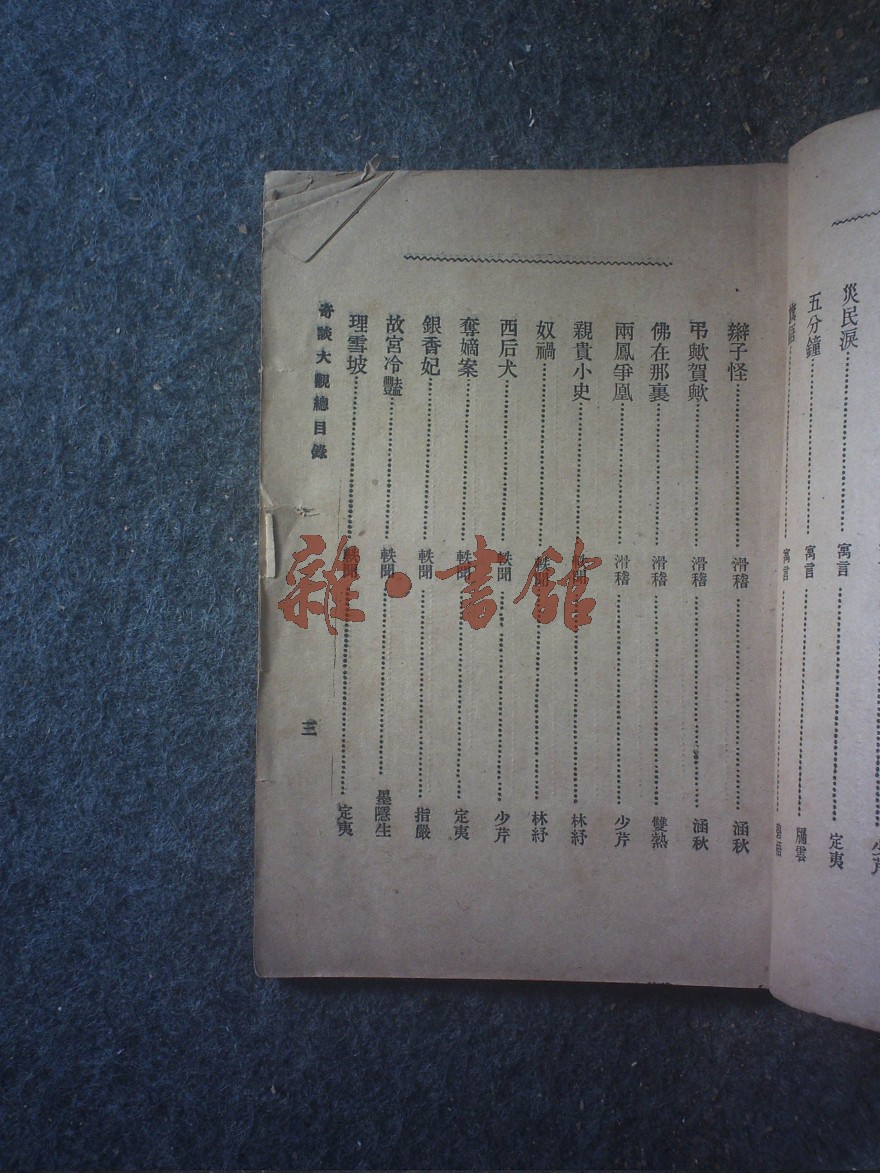 災民淚 寓言
五分鐘 寓言 定夷
寓言 牖雲
辮子怪 滑稽 涵秋
弔歟賀歟 滑稽 涵秋
佛在那裏 滑稽 雙熱
兩鳳爭凰 滑稽 少芹
親貴小史 軼聞 林紓
奴禍 軼聞 林紓
西后犬 軼聞 少芹
奪嫡案 軼聞 定夷
銀香妃 軼聞 指嚴
故宮冷豔 軼聞 墨隱生
理雪坡 軼聞 定夷
奇談大觀總目錄 三
雜·書館